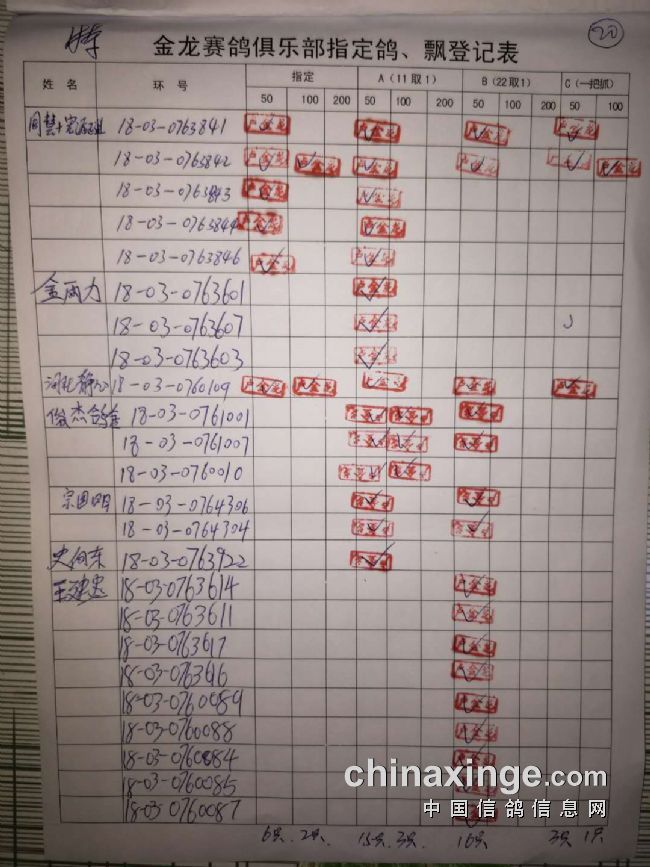 特
20
金龙赛鸽俱乐部指定鸽、飘登记表
姓 名 环 号 指定 A（11取1） B（22取1） C（一把抓）
50 100 200 50 100 200 50 100 200 50 100
18-03-0763841
18-03-0763842
18-03-0763843
18-03-0763844
18-03-0763846
18-03-0763601
18-03-0763607
18-03-0763603
河北静 18-03-0760109
俊杰鸽舍 18-03-0761001
18-03-0761007
18-03-0760010
宗国明 18-03-0764306
18-03-0764304
史向东 18-03-0763922
王建忠 18-03-0763614
18-03-0763611
18-03-0763617
18-03-0763616
18-03-0760089
18-03-0760088
18-03-0760084
18-03-0760085
18-03-0760087
6只、2只、15只、3只、16只 3只 1只
chinaxinge.com
中国信鸽信息网